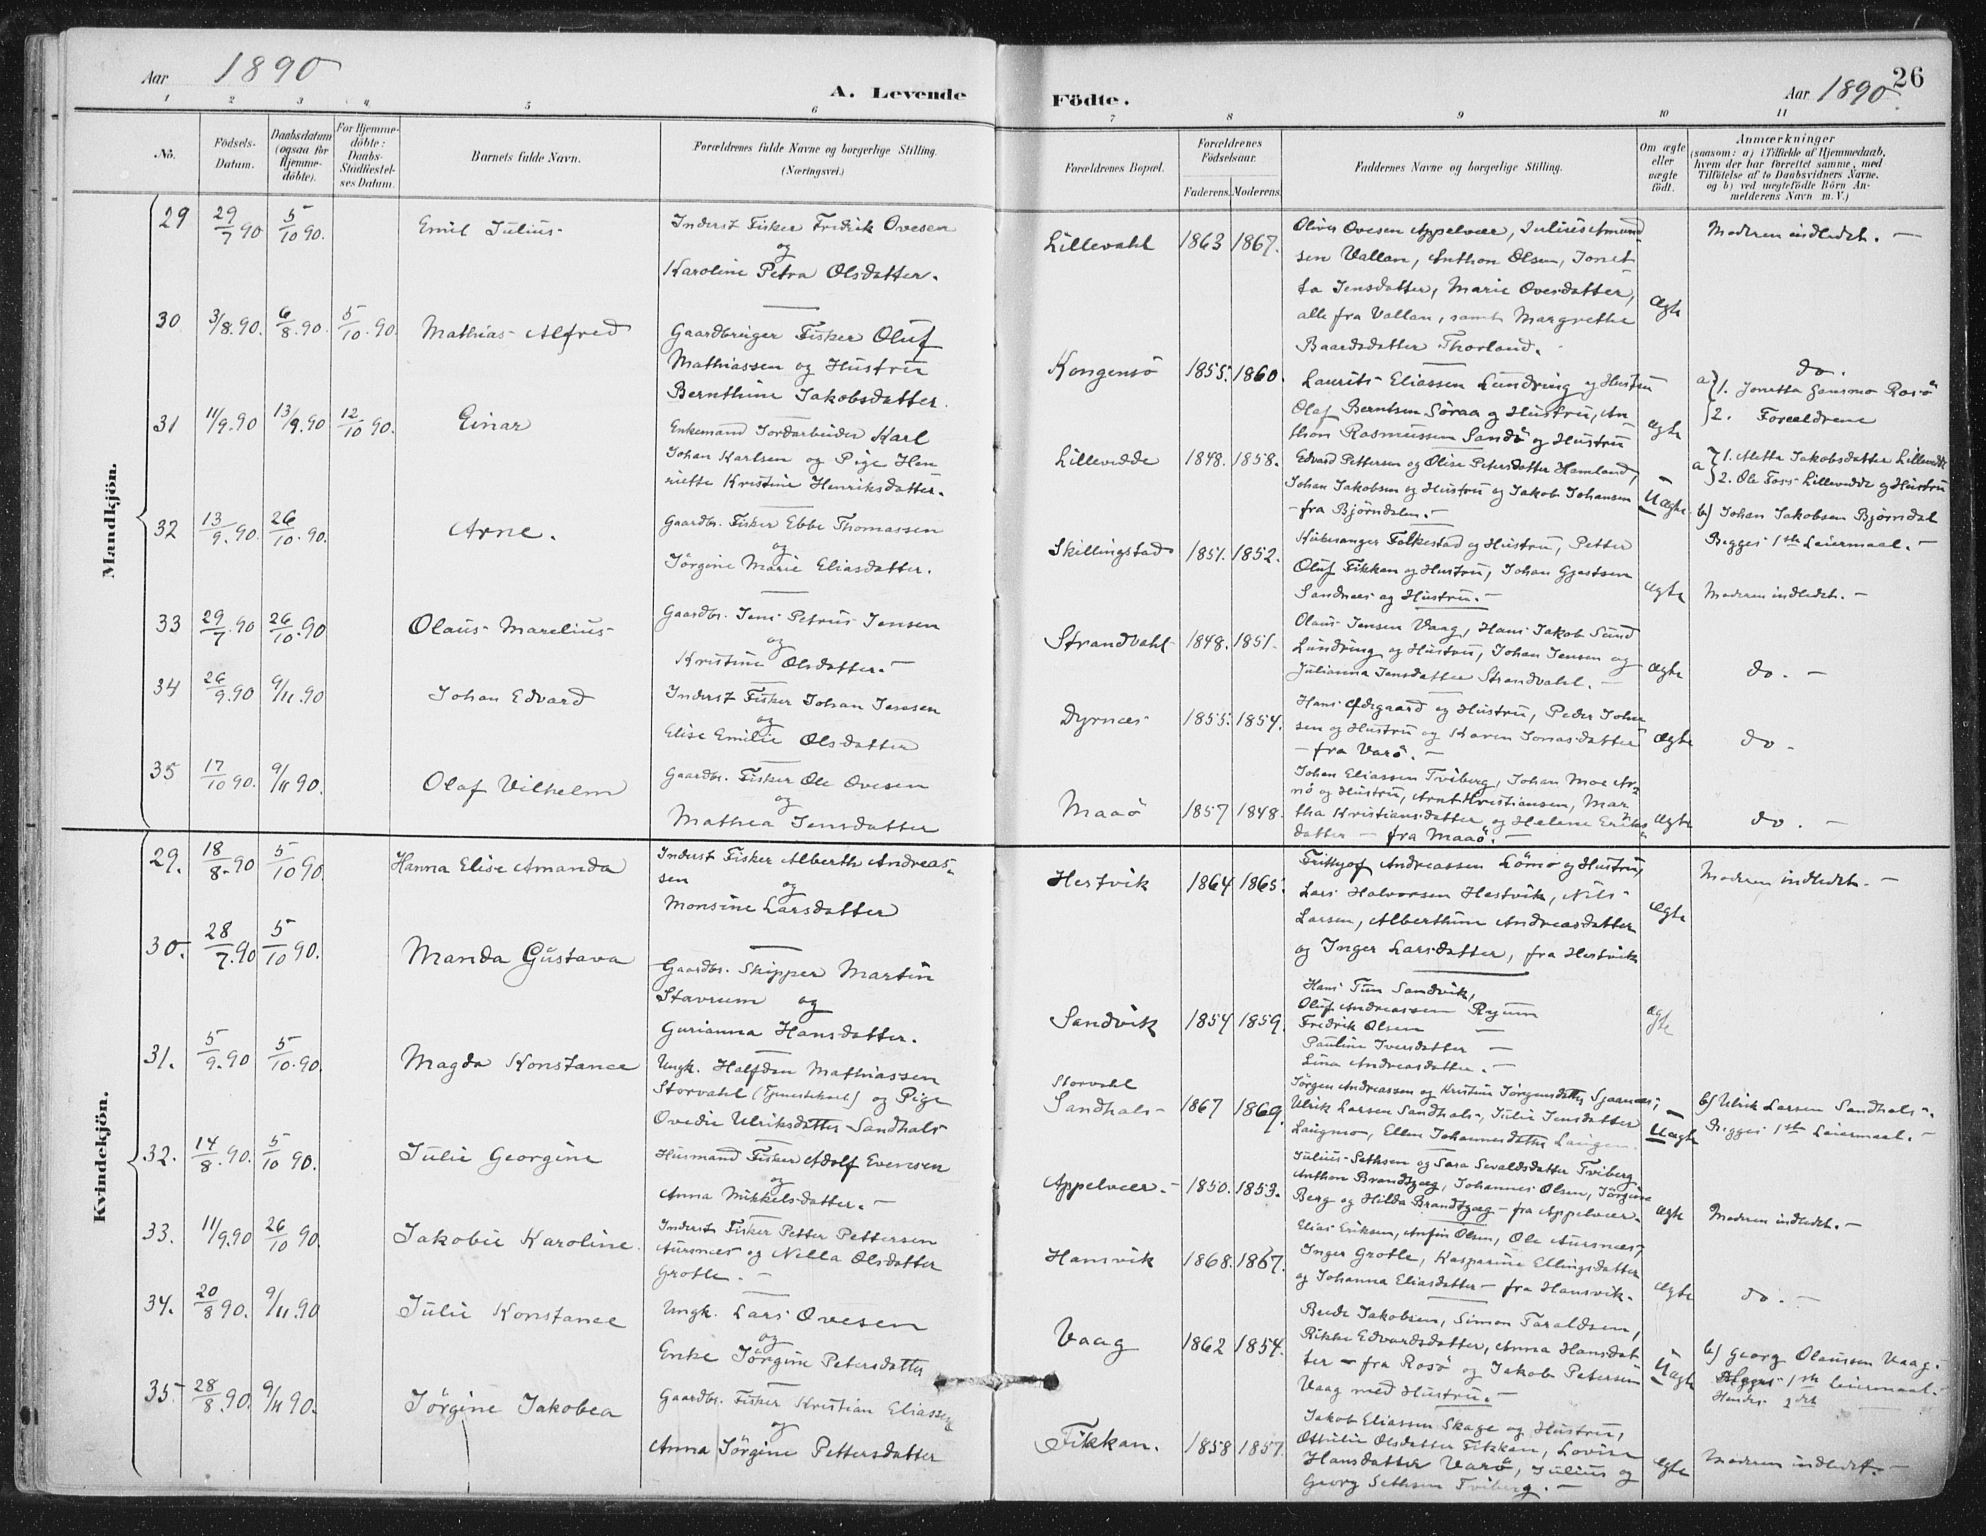 Aar 1890
A. Levende
1 2 3 4 5 6
No.
Födsels-
Datum.
Daabsdatum
(ogsaa for
Hjemme-
döbte).
For Hjemme-
döbte:
Daabs-
Stadfæstel-
ses Datum.
Barnets fulde Navn.
Forældrenes fulde Navne og borgerlige Stilling.
(Næringsvei.)
Mandkjön.
29 29/7 90 5/10 90. Emil Julius Inderst Fisker Fredrik Ovesen
og
Karoline Petra Olsdatter.
30 3/8.90. 6/8.90. 5/10.90. Mathias Alfred Gaardbruger Fisker Oluf
Mathiassen og Hustru
Bernthine Jakobsdatter.
31 11/9.90 13/9.90 12/10 90. Einar Enkemand Jordarbeider Karl
Johan Karlsen og Pige Hen
riette Kristine Henriksdatter.
32 13/9.90 26/10.90. Arne. Gaardbr. Fisker Ebbe Thomassen
og
Jörgine Marie Eliasdatter.
33 29/7.90 26/10.90 Olaus Marelius Gaardbr. Jens Petrus Jensen
og
Kristine Olsdatter.
34 26/9.90 9/11.90 Johan Edvard Inderst Fisker Johan Jensen
og
Elise Emilie Olsdatter
35 17/10 90. 9/11 90. Olaf Vilhelm Gaardbr. Fisker Ole Ovesen
og
Mathea Jensdatter
Kvindekjön.
29. 18/8.90 5/10 90. Hanna Elise Amanda Inderst Fisker Alberth Andreas-
sen
og
Monsine Larsdatter
30. 28/7.90 5/10 90. Manda Gustava Gaardbr. Skipper Martin
Stavrum og
Gurianna Hansdatter.
31. 5/9.90 5/10.90. Magda Konstance Ungk. Halfdan Mathiassen
Storvahl (Tjenestekarl) og Pige
Ovedie Ulriksdatter Sandhals
32. 14/8.90. 5/10 90. Julie Georgine Husmand Fisker Adolf Evensen
og
Anna Mikkelsdatter.
33. 11/9.90 26/10 90. Jakobie Karoline. Inderst Fisker Petter Pettersen
Aursnæs og Nella Olsdatter
Grotle.
34. 20/8 90. 9/11.90 Julie Konstance Ungk. Lars Ovesen
og
Enke Jörgine Petersdatter
35 28/8 90. 9/11 90. Jörgine Jakobea Gaardbr. Fisker Kristian Eliassen
og
Anna Jörgine Pettersdatter
26
Födte.
Aar 1890.
7 8 9 10 11
Forældrenes Bopæl.
Forældrenes
Födselsaar.
Faderens. Moderens.
Faddernes Navne og borgerlige Stilling.
Om ægte
eller
uægte
födt.
Anmærkninger
(saasom: a) i Tilfælde af Hjemmedaab,
hvem der har forrettet samme, med
Tilföielse af to Daabsvidners Navne,
og b) ved uægtefödte Börn An-
melderens Navn m. V.)
Lillevahl 1863 1867. Oliver Ovesen Appelvær, Julius Amund
sen Vallan, Anthon Olsen, Jonet
ta Jensdatter, Marie Ovesdatter,
alle fra Vallan, samt Margrethe
Baardsdatter Thorland.
Ægte Moderen indledet. —
Kongensö 1855. 1860. Laurits Eliassen Lundring og Hustru
Olaf Berntsen Söraa og Hustru, An
thon Rasmussen Sandö og Hustru
Ægte do.
a} 1. Jonetta Hansmo Rosö
2. Forældrene
Lillevedde 1848. 1858. Edvard Pettersen og Olise Petersdatter Hamland,
Johan Jakobsen og Hustru og Jakob Johansen
— fra Björndalen. —
Uægte a} 1. Mette Jakobsdatter Lillevedde
2. Ole Foss Lillevedde og Hustru
b) Johan Jakobsen Björndal
Begges 1ste Leiermaal. —
Skillingstad 1851. 1852. Kirkesanger Falkestad og Hustru, Petter
Oluf Fikkan og Hustru, Johan Gjertsen
Sandnæs og Hustru. —
Ægte Moderen indledet. —
Strandvahl 1848. 1851. Olaus Jensen Vaag, Hans Jakob Sund
Lundring og Hustru, Johan Jensen og
Julianna Jensdatter Strandvahl. —
Ægte do. —
Dyrnæs 1855. 1854. Hans Ødegaard og Hustru, Peder Johan
sen og Hustru og Karen Jonasdatter
— fra Varö. —
Ægte do —
Maaö 1857 1848. Johan Eliassen Tviberg, Johan Moe Ar-
nö og Hustru, Arnt Kristiansen, Mar
tha Kristiansdatter og Helene Eriks
datter — fra Maaö. —
Ægte do. —
Hestvik 1864 1865. Frithjof Andreassen Lömo og Hustru,
Lars Halvorsen Hestvik, Nils
Larsen, Alberthine Andreasdatter
og Inger Larsdatter, fra Hestvik
Ægte Moderen indledet. —
Sandvik 1854 1859. Hans Tun Sandvik,
Oluf Andreassen Ryum
Fredrik Olsen —
Pauline Iversdatter —
Lina Andreasdatter. —
Ægte
Storvahl
Sandhals 1867 1869. Jörgen Andreassen og Kristine Jörgensdatter Sjaanæs;
Ulrik Larsen Sandhals, Julie Jensdatter
Laugmo, Ellen Johannesdatter Laugen
Uægte b) Ulrik Larsen Sandhals.
Begges 1ste Leiermaal. —
Appelvær. — 1850. 1853. Julius Sethsen og Sara Sevaldsdatter Tviberg
Anthon Brandtzæg, Johannes Olsen, Jörgine
Berg og Hilda Brandtzæg — fra Appelvær.
Ægte Moderen indledet. —
Hansvik 1868. 1867. Elias Eriksen, Anfin Olsen, Ole Aursnæs,
Inger Grotle, Kasparine Ellingsdatter
og Johanna Eliasdatter — fra Hansvik.
Ægte do. —
Vaag 1862 1854. Berde Jakobsen, Simon Taraldsen,
Rikke Edvardsdatter, Anna Hansdat
ter — fra Rosö og Jakob Petersen
Vaag med Hustru. —
Uægte b) Georg Olaussen Vaag.
1ste Leiermaal.
Hendes 2det
Fikkan. 1858 1857. Jakob Eliassen Skage og Hustru,
Ottilie Olsdatter Fikkan, Lovise
Hansdatter Varö, Julius og
Georg Sethsen Tviberg. —
Ægte Moderen indledet. —